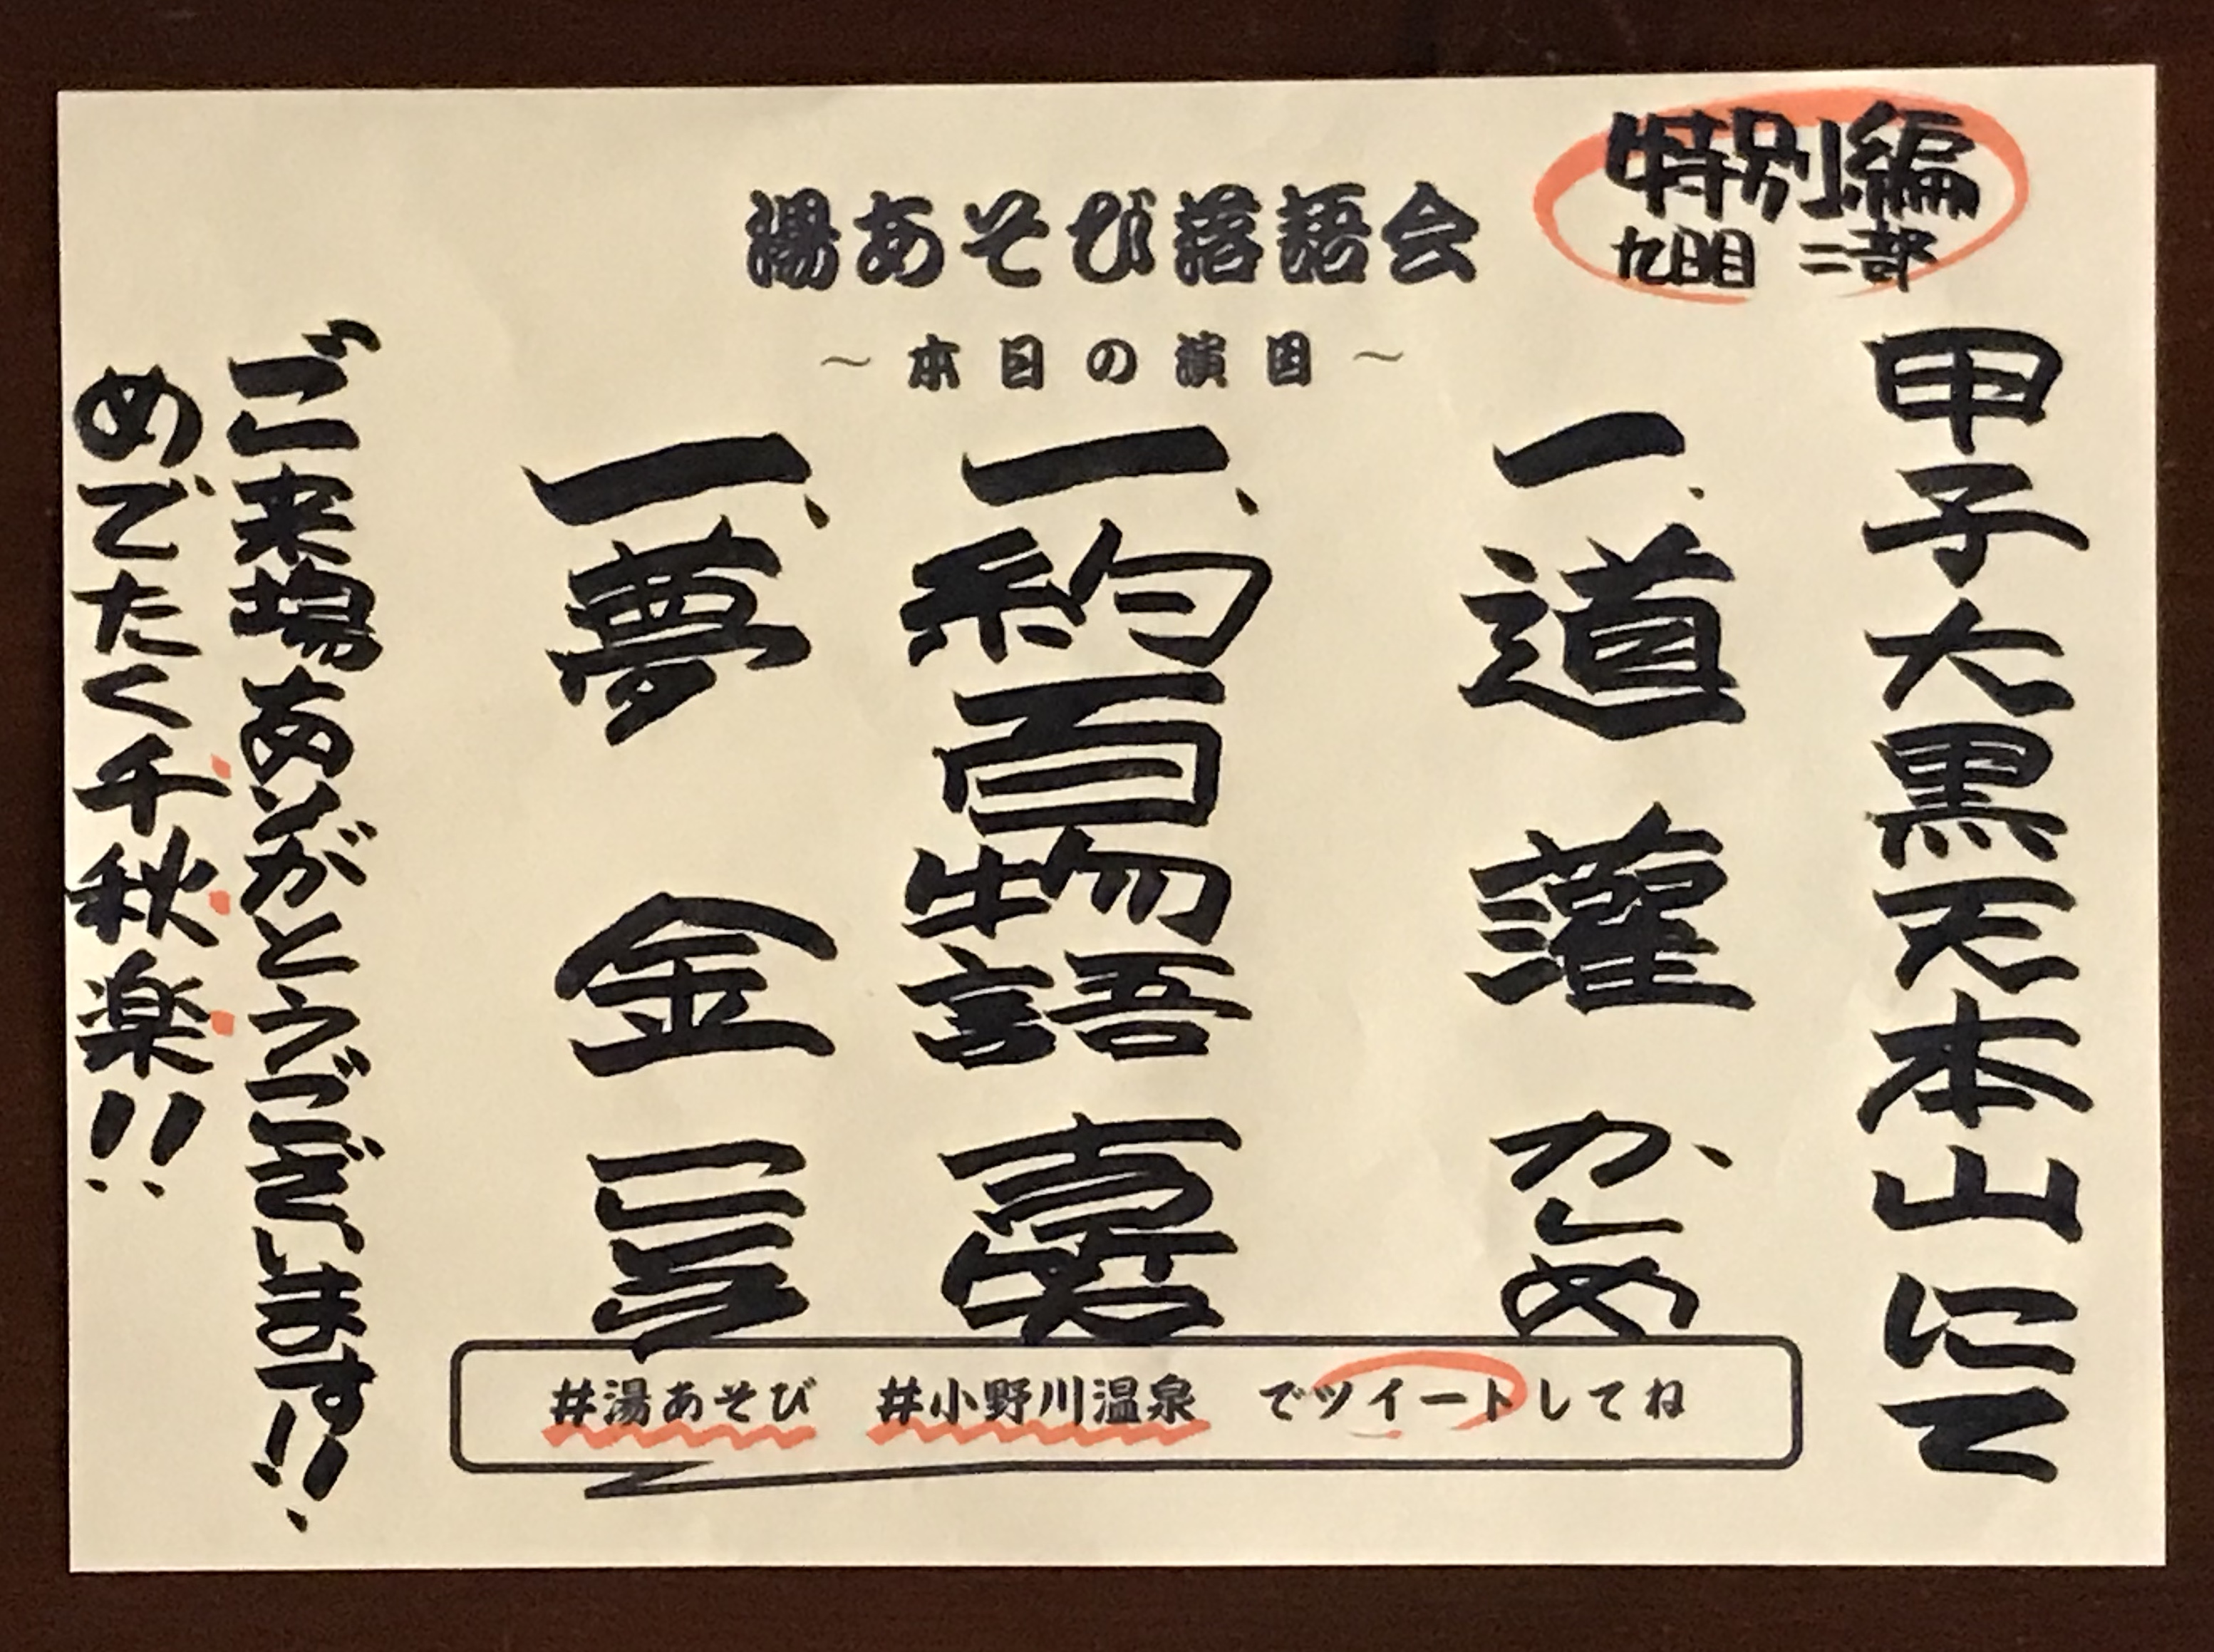 特別編
九日目 二部
湯あそび落語会
〜本日の演目〜
甲子大黒天本山にて
一、道灌 かしめ
一、約百物語 吉笑
一、夢金
ご来場ありがとうございます!!
めでたく千秋楽!!
#湯あそび #小野川温泉 でツイートしてね